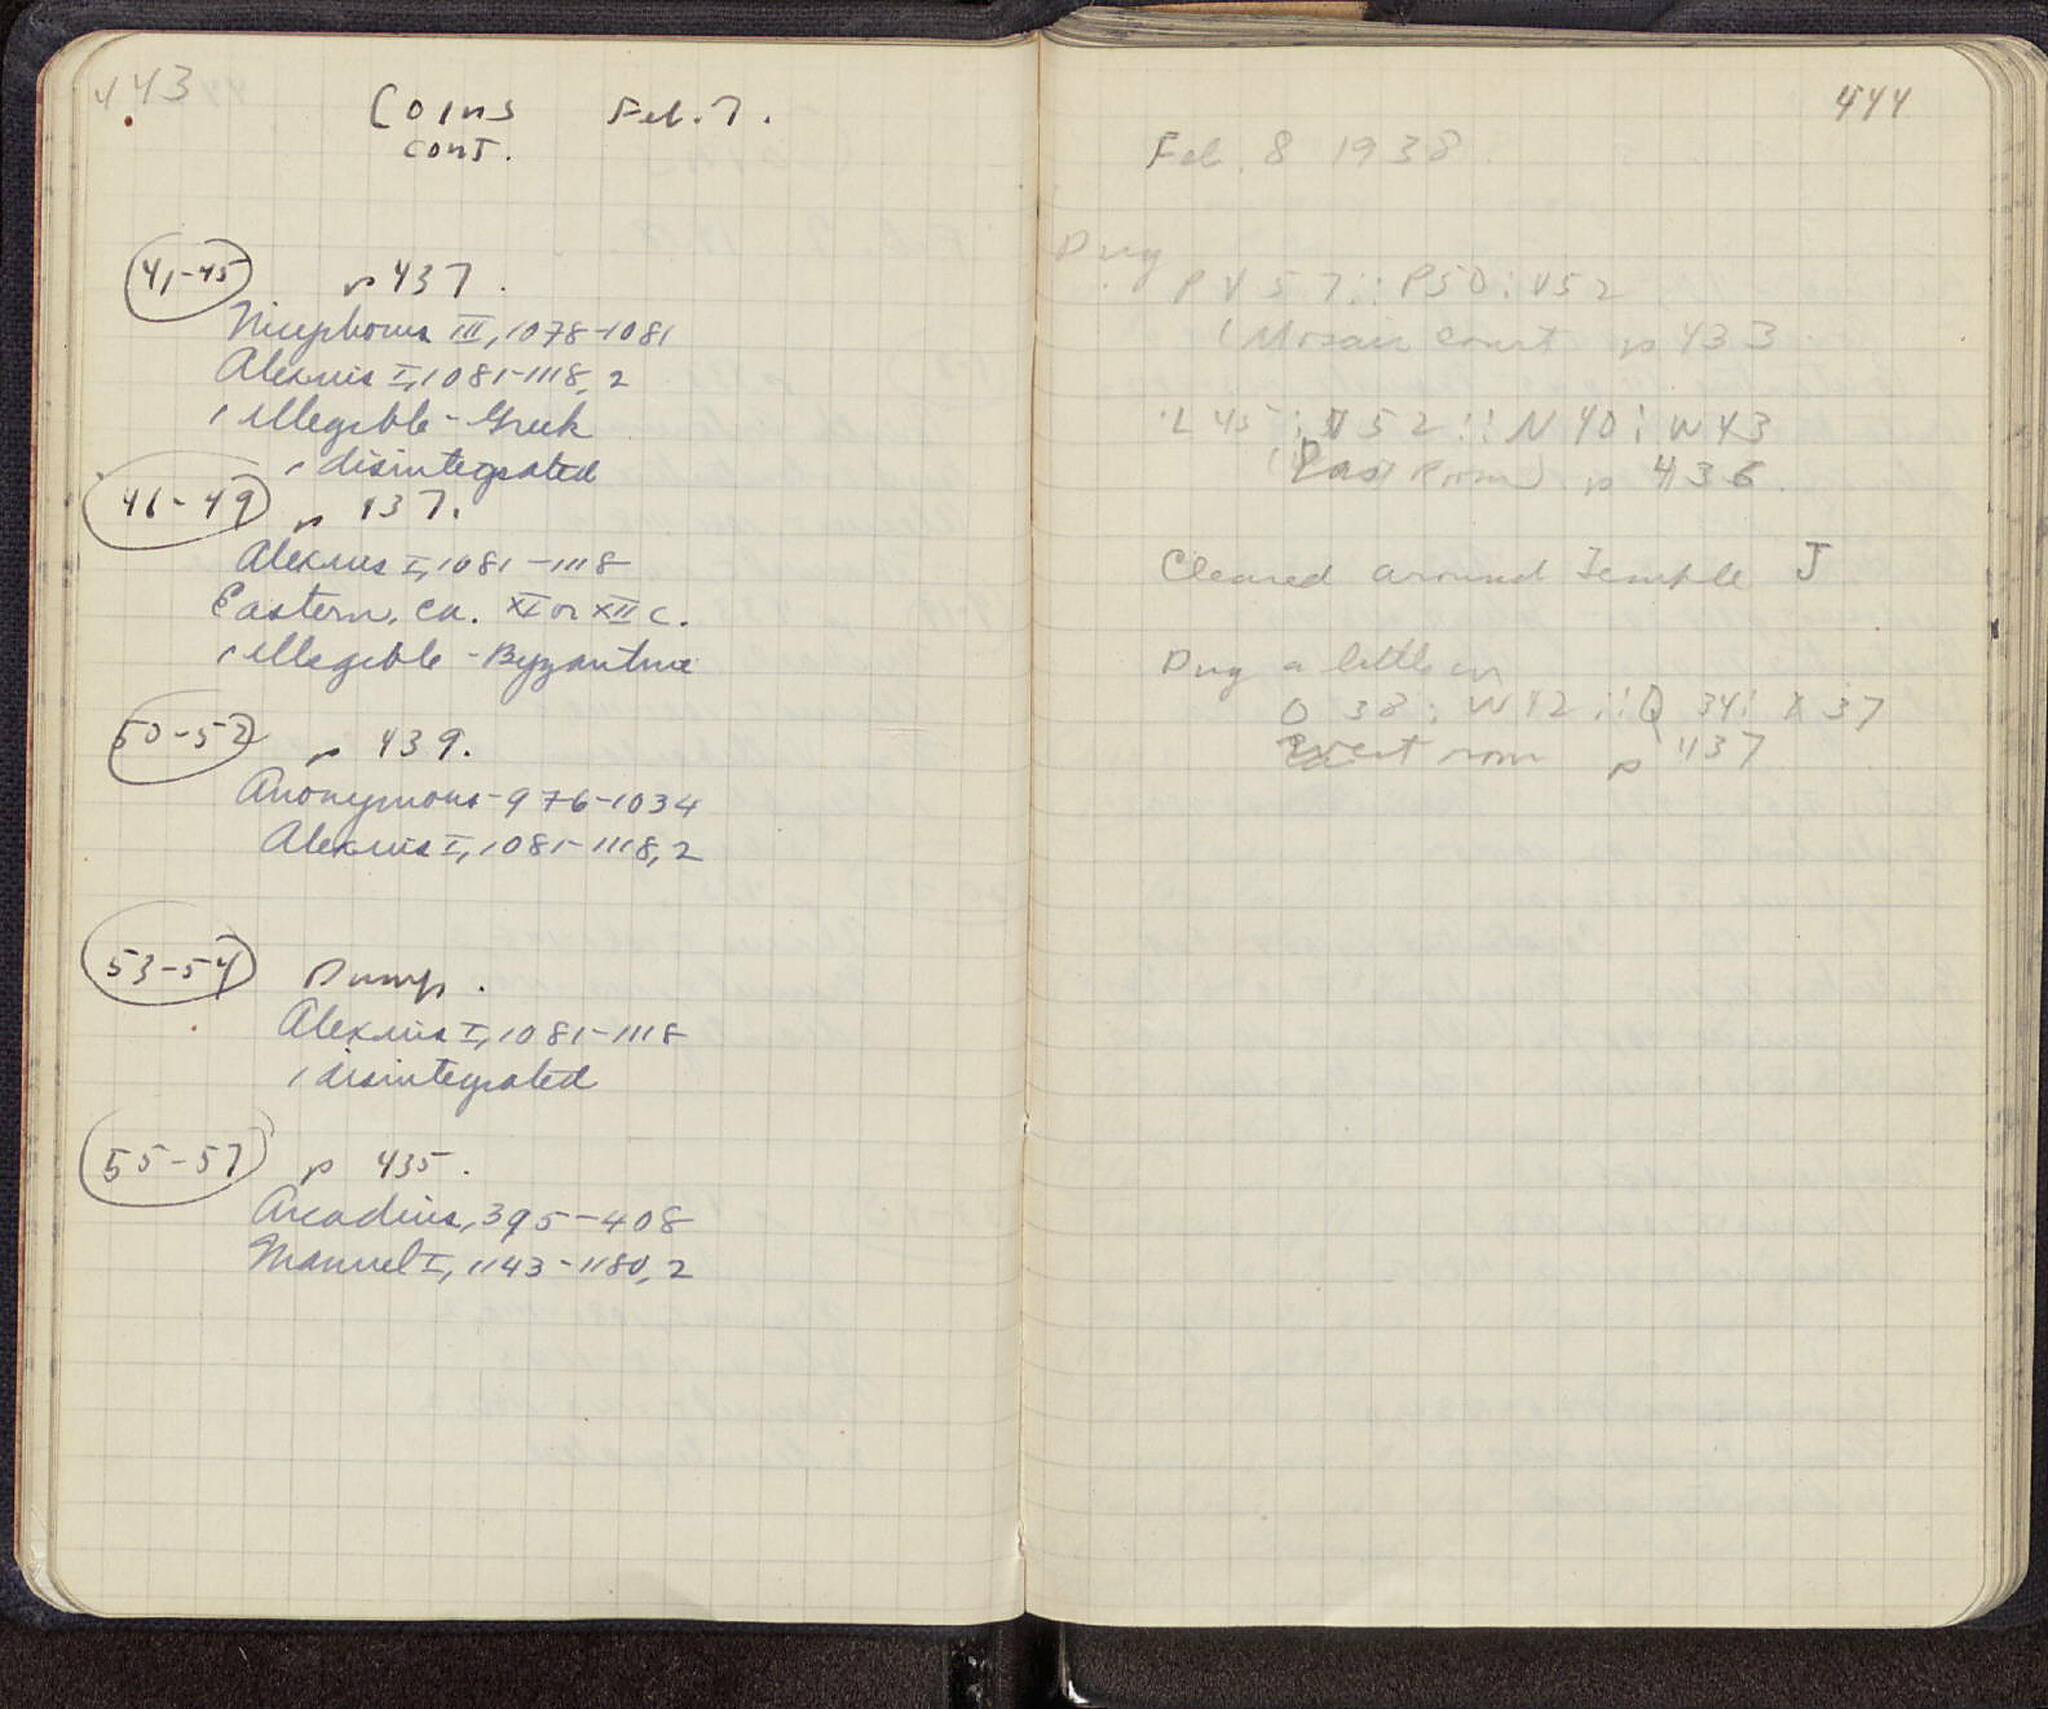 443
Coins Feb. 7.
cont.
41-45 p 437.
Nicephorus III, 1078-1081
Alexius I, 1081-1118, 2
1 illegible - Greek
1 disintegrated
46-49 p 437.
Alexius I, 1081-1118
Eastern, ca. XI or XII c.
1 illegible - Byzantine
50-52 p 439.
Anonymous - 976-1034
Alexius I, 1081-1118, 2
53-54 Dump.
Alexius I, 1081-1118
1 disintegrated
55-57 p 435.
Arcadius, 395-408
Manuel I, 1143-1180, 2
444
Feb. 8 1938.
Dug
P V 57 :: P50 : V52
(Mosaic court p 433
L 45 : V 52 :: N 40 : W 43
Room) p 436.
Cleared around Temple J
Dug a little in
O 38 : W 42 :: Q 34 : X 37
room p 437